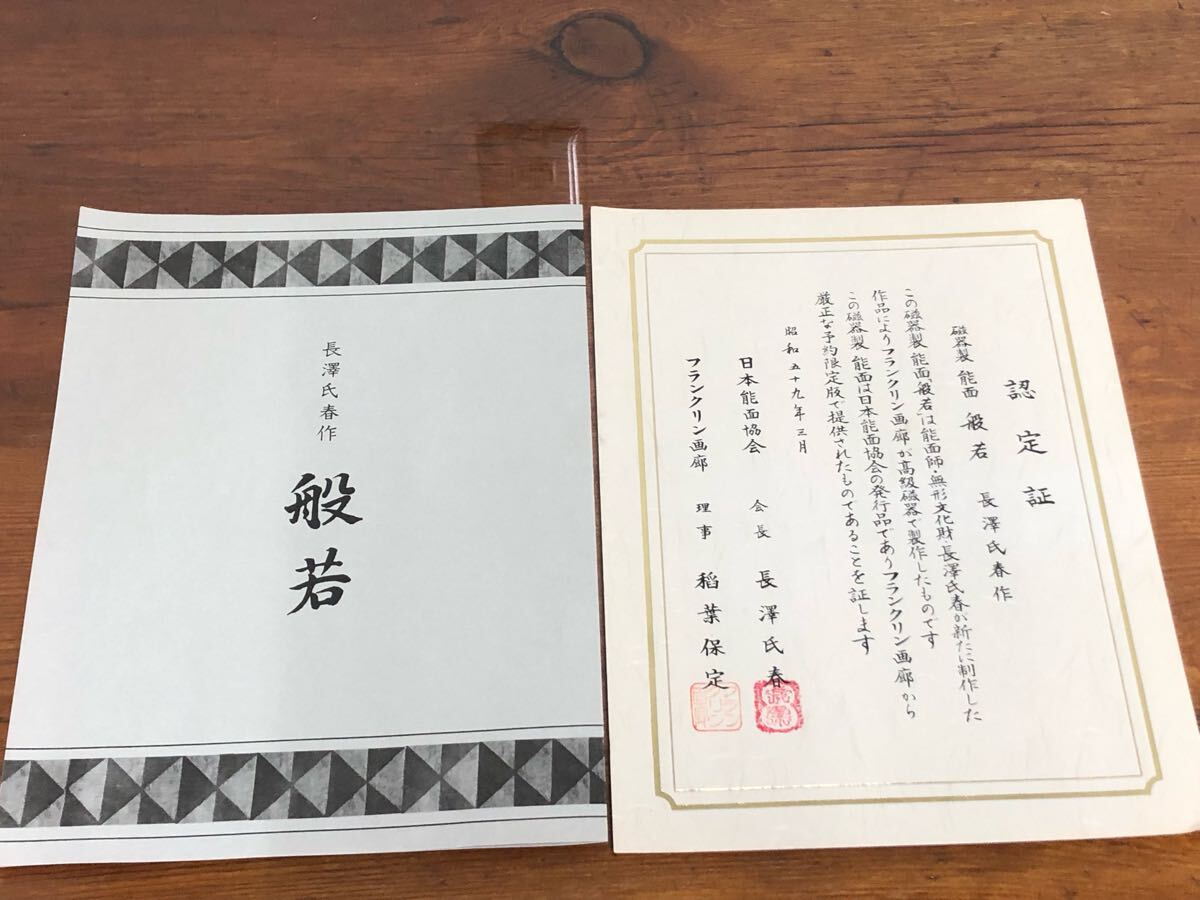 長澤氏春作
般若
認定証
磁器製 能面 般若 長澤氏春作
この磁器製 能面「般若」は能面師・無形文化財・長澤氏春が新たに制作した
作品によりフランクリン画廊が高級磁器で製作したものです
この磁器製 能面は日本能面協会の発行品でありフランクリン画廊から
厳正な予約限定版で提供されたものであることを証します
昭和五十九年三月
日本能面協会 会長 長澤氏春
フランクリン画廊 理事 稲葉保定